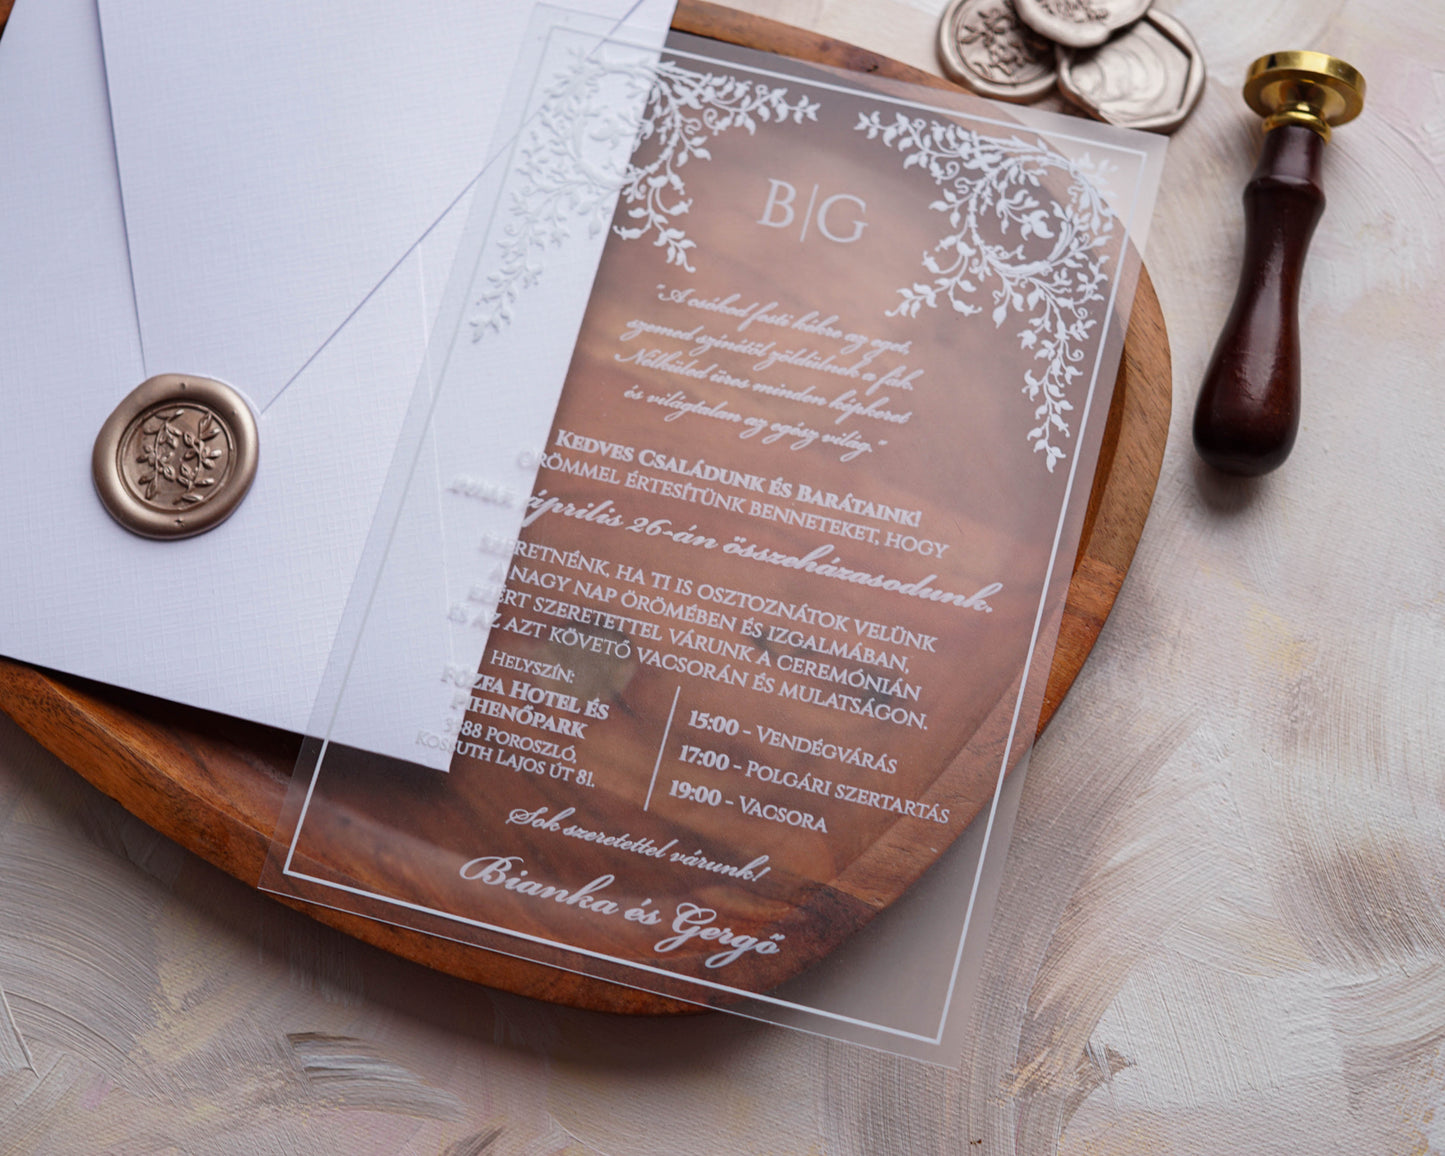 B|G
"A csókod festi kékre az eget,
szemed színétől zöldülnek a fák.
Nélküled üres minden képkeret
és világtalan az egész világ."
Kedves Családunk és Barátaink!
Örömmel értesítünk benneteket, hogy
április 26-án összeházasodunk.
Szeretnénk, ha ti is osztoznátok velünk
a nagy nap örömében és izgalmában,
ezért szeretettel várunk a ceremónián
és az azt követő vacsorán és mulatságon.
Helyszín:
Fűzfa Hotel és
Pihenőpark
3388 Poroszló,
Kossuth Lajos út 81.
15:00 - Vendégvárás
17:00 - Polgári szertartás
19:00 - Vacsora
Sok szeretettel várunk!
Bianka és Gergő